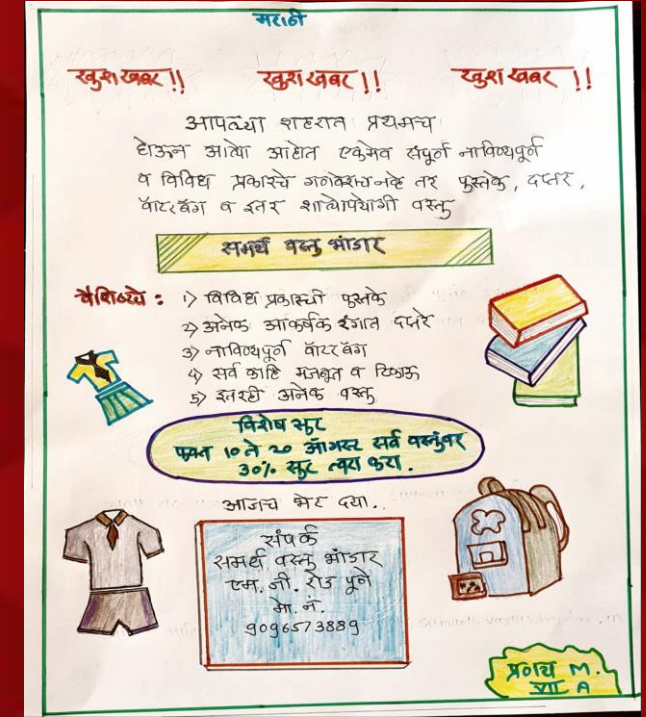 मराठी
खुशखबर !! खुशखबर !! खुशखबर !!
आपल्या शहरात प्रथमच
होऊन आल्या आहेत एकमेव संपूर्ण नाविण्यपूर्ण
व विविध प्रकारचे गणवेशाचनव्हे तर पुस्तके, दप्तर,
वॉटरबॅग व इतर शालोपयोगी वस्तु
समर्थ वस्तु भांडार
वैशिष्ट्ये : १) विविध प्रकारची पुस्तके
२) अनेक आकर्षक रंगात दप्तरे
३) नाविण्यपूर्ण वॉटरबॅग
४) सर्व काहि मजबूत व टिकाऊ
५) इतरही अनेक वस्तु
विशेष सुट
फक्त १० ते २० ऑगस्ट सर्व वस्तुंवर
३०% सुट त्वरा करा.
आजच भेट दया..
संपर्क
समर्थ वस्तु भांडार
एम. जी. रोड पूने
मो. नं.
9096573889
प्रणय M.
VII A